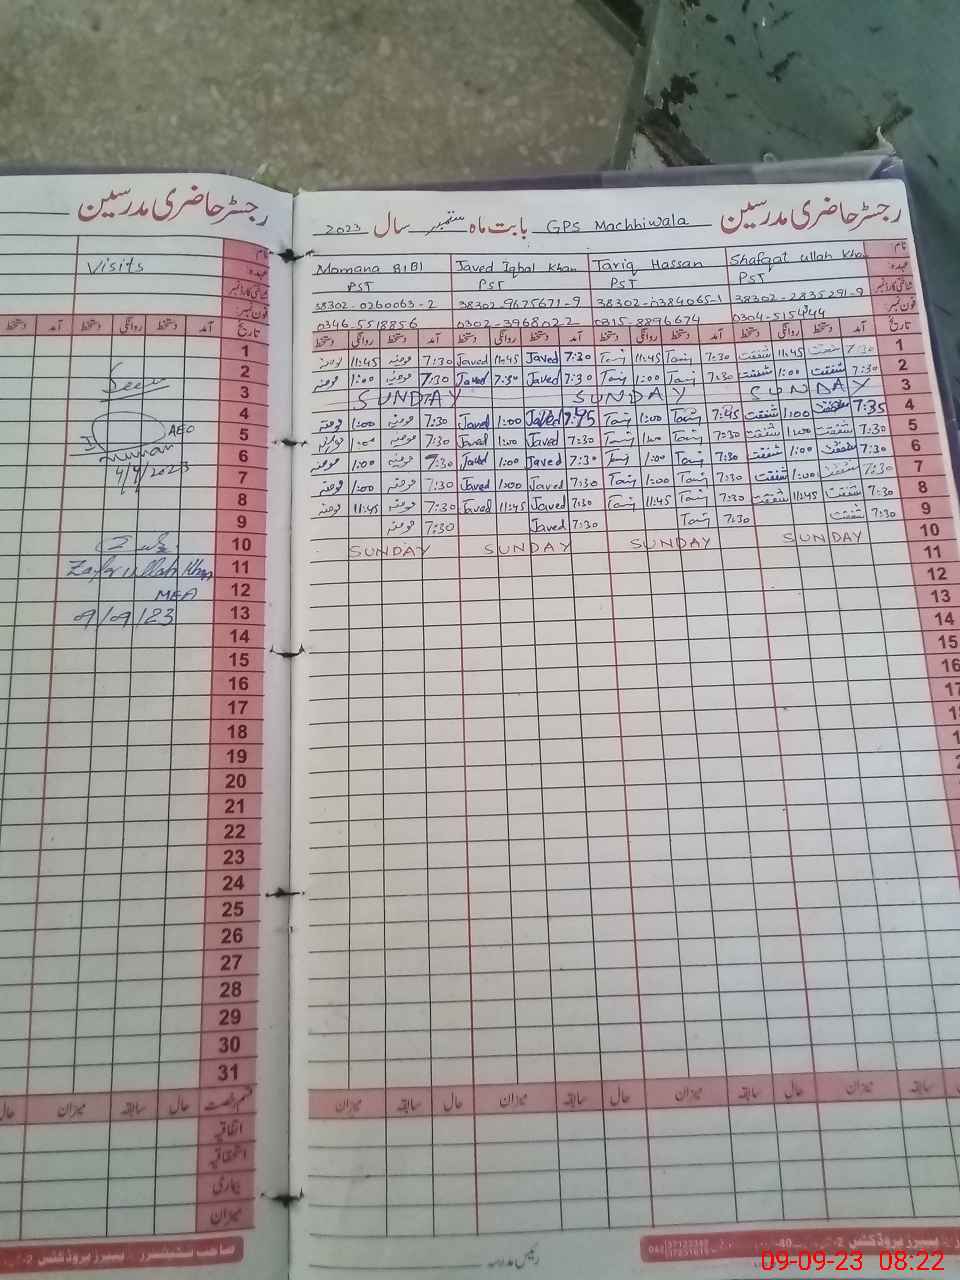 رجسٹر حاضری مدرسین
Visits
آمد دستخط روانگی دستخط آمد دستخط
نام
عہدہ
شناختی کارڈ نمبر
فون نمبر
تاریخ
1
2
3
4
5
6
7
8
9
10
11
12
13
14
15
16
17
18
19
20
21
22
23
24
25
26
27
28
29
30
31
Seen
AEO
4/9/2023
Zafar ullah Khan
MEA
9/9/23
قسم رخصت حال سابقہ میزان حال
اتفاقیہ
استحقاقیہ
بیماری
میزان
رجسٹر حاضری مدرسین GPS Machhiwala بابت ماہ ستمبر سال 2023
نام Shafqat ullah Khan Tariq Hassan Javed Iqbal Khan Momana BIBI
عہدہ PST PST PST PST
شناختی کارڈ نمبر 38302-2835291-9 38302-0384065-1 38302-9675671-9 38302-0260063-2
فون نمبر 0304-5154444 0315-8896674 0302-3968022 0346-5518856
تاریخ آمد دستخط روانگی دستخط آمد دستخط روانگی دستخط آمد دستخط روانگی دستخط آمد دستخط روانگی دستخط
1 7:30 شفقت 11:45 شفقت 7:30 Tariq 11:45 Tariq 7:30 Javed 11:45 Javed 7:30 مومنہ 11:45 مومنہ
2 7:30 شفقت 1:00 شفقت 7:30 Tariq 1:00 Tariq 7:30 Javed 7:30 Javed 7:30 مومنہ 1:00 مومنہ
3 SUNDAY SUNDAY SUNDAY
4 7:35 شفقت 1:00 شفقت 7:45 Tariq 1:00 Tariq 7:45 Javed 1:00 Javed 7:30 مومنہ 1:00 مومنہ
5 7:30 شفقت 1:00 شفقت 7:30 Tariq 1:00 Tariq 7:30 Javed 1:00 Javed 7:30 مومنہ 1:00 مومنہ
6 7:30 شفقت 1:00 شفقت 7:30 Tariq 1:00 Tariq 7:30 Javed 1:00 Javed 7:30 مومنہ 1:00 مومنہ
7 7:30 شفقت 1:00 شفقت 7:30 Tariq 1:00 Tariq 7:30 Javed 1:00 Javed 7:30 مومنہ 1:00 مومنہ
8 7:30 شفقت 11:45 شفقت 7:30 Tariq 11:45 Tariq 7:30 Javed 11:45 Javed 7:30 مومنہ 11:45 مومنہ
9 7:30 شفقت 7:30 Tariq 7:30 Javed 7:30 مومنہ
10 SUNDAY SUNDAY SUNDAY SUNDAY
11
12
13
14
15
16
17
18
میزان سابقہ حال میزان سابقہ حال میزان سابقہ حال میزان سابقہ
رئیس مدرسہ
09-09-23 08:22